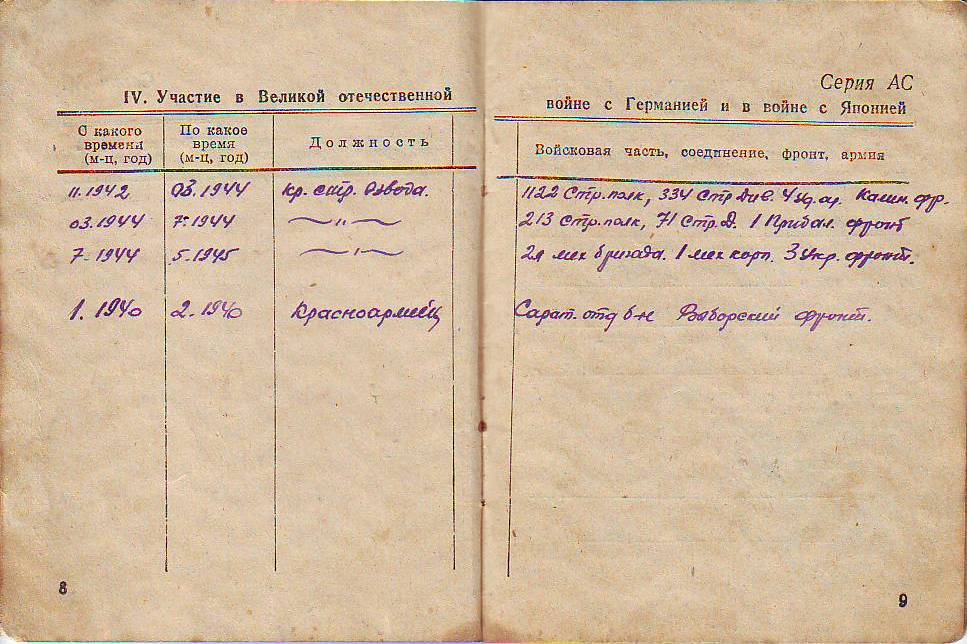 Серия АС
IV. Участие в Великой отечественной войне с Германией и в войне с Японией
С какого времени (м-ц, год) По какое время (м-ц, год) Должность Войсковая часть, соединение, фронт, армия
11.1942 03.1944 кр. стр. взвода. 1122 Стр. полк, 334 стр див. 4 уд. ар. Калин. фр.
03.1944 7-1944 —〃— 213 Стр. полк, 71 Стр. Д. 1 Прибал. фронт
7-1944 5-1945 —〃— 2я мех бригада. 1 мех корп. 3 Укр. фронт.
1.1940 2.1940 Красноармеец Сарат. отд б-н Выборский фронт.
8 9